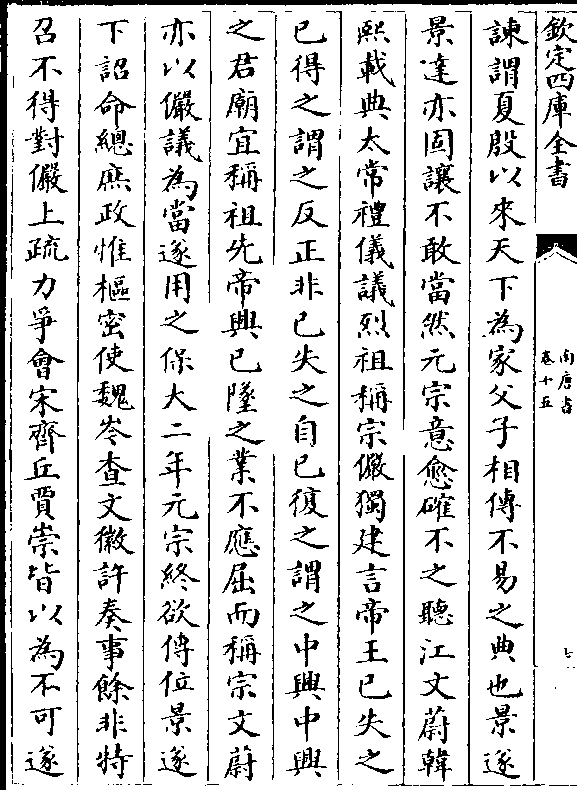 欽定四庫全書
南唐書
卷十五
諫謂夏殷以來天下為家父子相傳不易之典也景遂
景達亦固讓不敢當然元宗意愈確不之聽江文蔚韓
熙載典太常禮儀議烈祖稱宗儼獨建言帝王已失之
已得之謂之反正非已失之自已復之謂之中興中興
之君廟宜稱祖先帝興已墜之業不應屈而稱宗文蔚
亦以儼議為當遂用之保大二年元宗終欲傳位景遂
下詔命總庶政惟樞密使魏岑查文徽許奏事餘非特
召不得對儼上疏力爭會宋齊丘賈崇皆以為不可遂